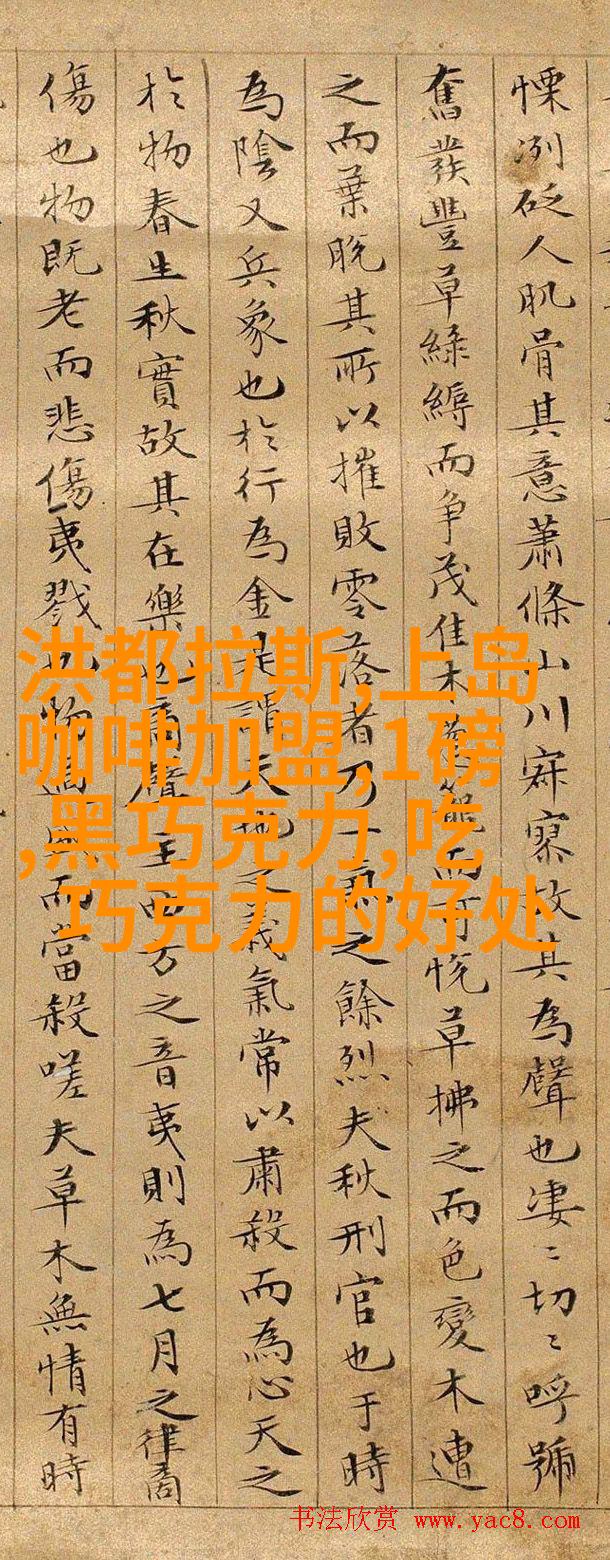 慄冽砭人肌骨其意蕭條山川寂寥故其為聲也淒〻切〻呼號
奮發豐草綠縟而争茂佳木而可悅草拂之而色變木遭
之而葉脫其所以摧敗零落者乃一氣之餘烈夫秋刑官也于時
為陰又兵象也於行為金是謂天地之義氣常以肅殺而為心天之
於物春生秋實故其在樂也商聲主西方之音夷則為七月之律商
傷也物既老而悲傷夷戮也物過而當殺嗟夫草木無情有時
洪都拉斯,上岛
咖啡加盟,1磅
,黑巧克力,吃
巧克力的好处
书法欣赏 www.yac8.com